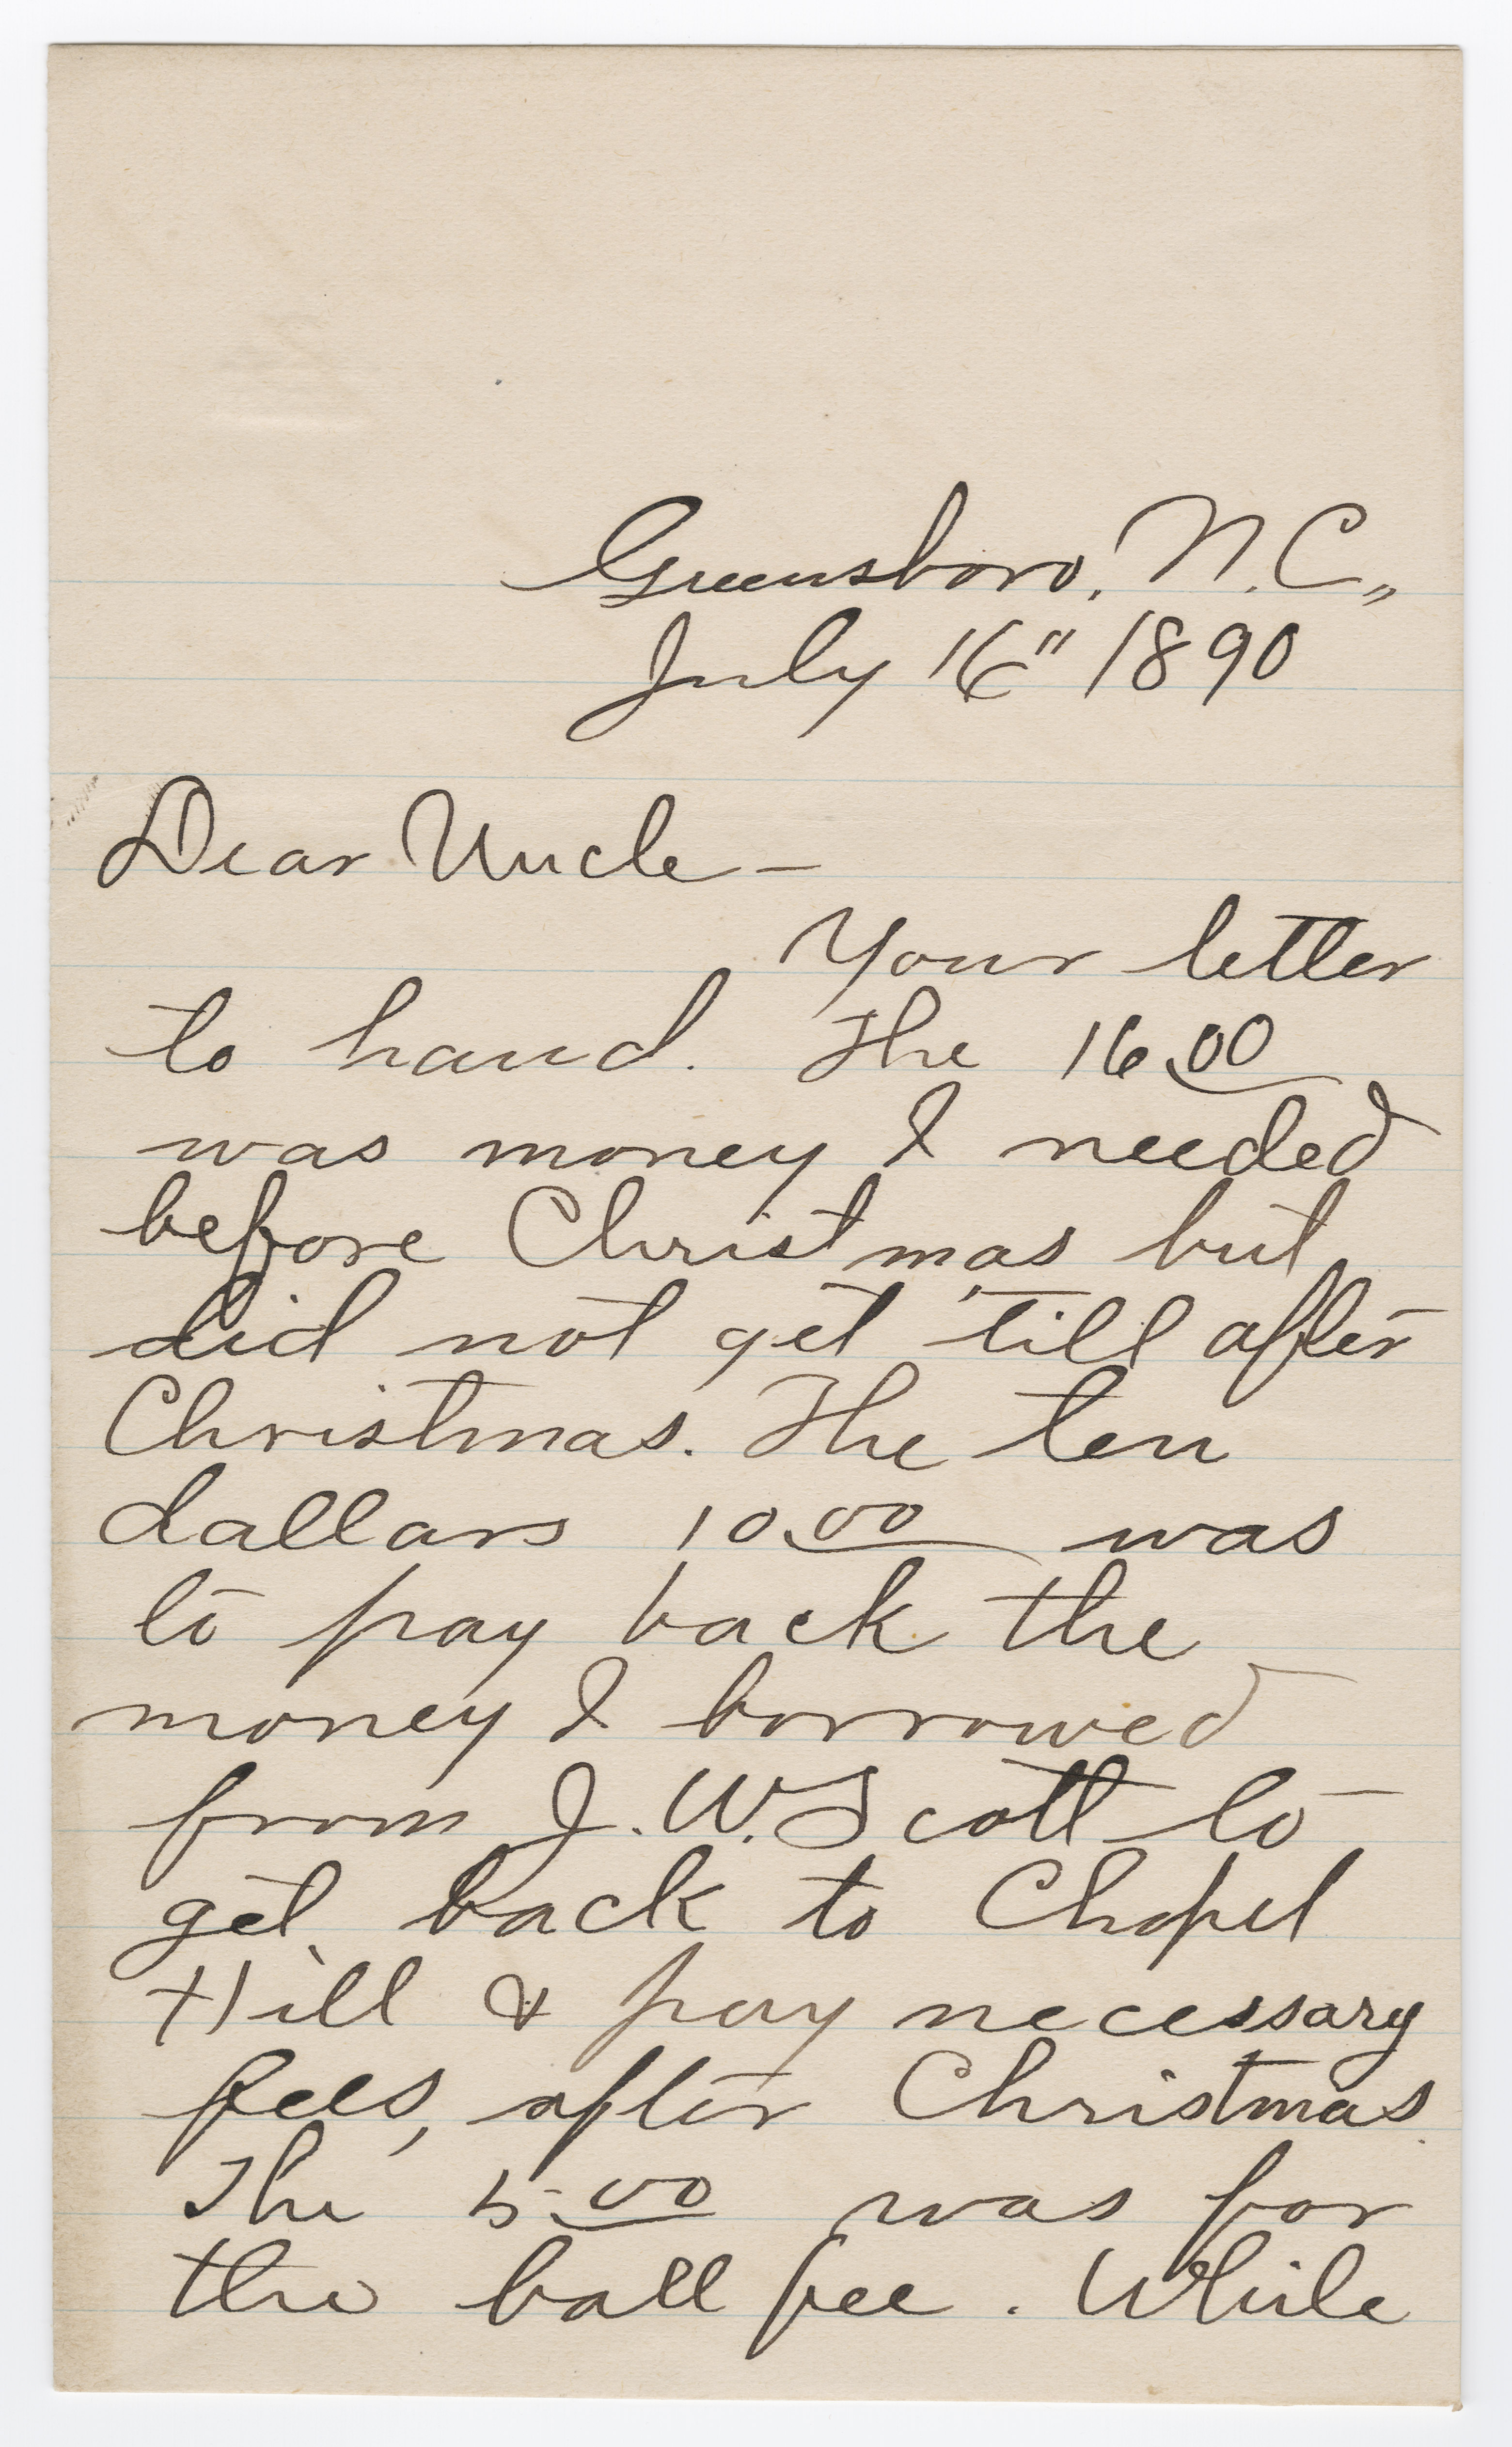 Greensboro, N.C.,
July 16" 1890
Dear Uncle —
Your letter
to hand. The 16.00
was money I needed
before Christmas but
did not get 'till after
Christmas. The ten
dallars 10.00 was
to pay back the
money I borrowed
from J. W. Scott to
get back to Chapel
Hill & pay necessary
fees, after Christmas.
The 5.00 was for
the ball fee. While